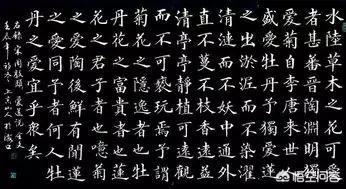 水陸草木之花可愛
者甚蕃晉陶淵明獨
愛菊自李唐来世人
盛愛牡丹予獨愛蓮
之出淤泥而不染濯
清漣而不妖中通外
直不蔓不枝香遠益
清亭亭静植可遠觀
而不可褻玩焉予謂
菊花之隱逸者也牡
丹花之富貴者也蓮
花之君子者也噫菊
之愛陶後鮮有聞蓮
之愛同予者何人牡
丹之愛宜乎衆矣
右錄宋周敦頤愛蓮說全文
壬辰年初冬上京山人於
悟空问答